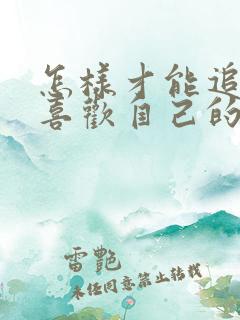 怎樣才能追
喜歡自己的
雷艷
未任同意禁止转载